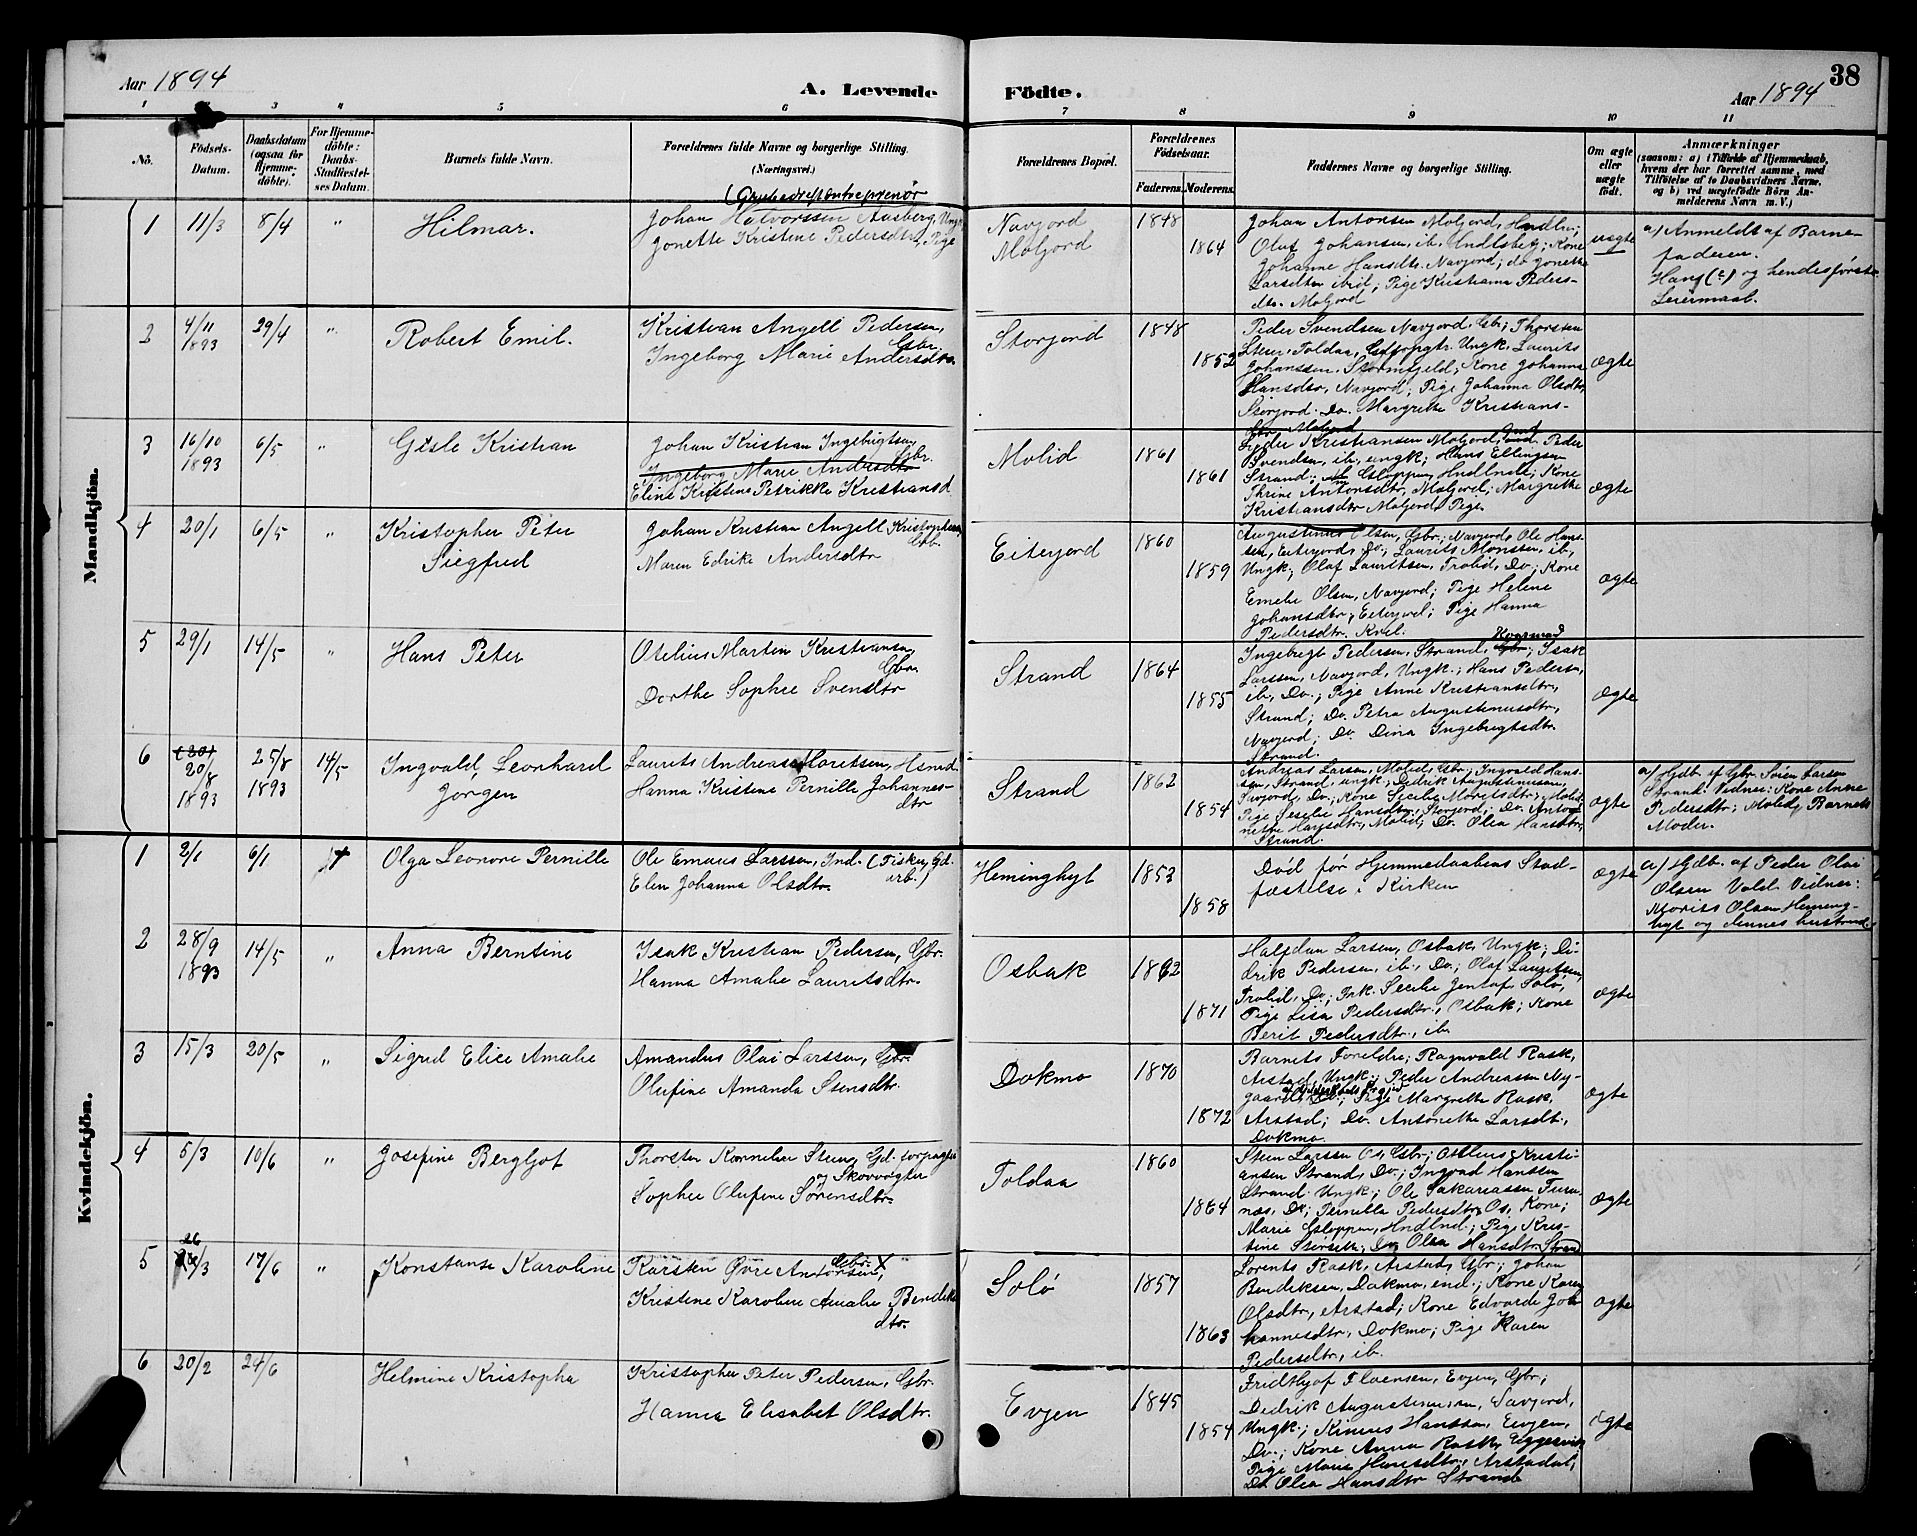 Aar 1894
A. Levende
Födte.
Aar 1894
38
1 2 3 4 5 6 7 8 9 10 11
No.
Födsels-Datum.
Daabsdatum (ogsaa for Hjemme-döbte).
For Hjemme-döbte: Daabs-Stadfæstel-ses Datum.
Barnets fulde Navn.
Forældrenes fulde Navne og borgerlige Stilling. (Næringsvei.)
Forældrenes Bopæl.
Forældrenes Födselsaar.
Faderens. Moderens.
Faddernes Navne og borgerlige Stilling.
Om ægte eller uægte födt.
Anmærkninger
(saasom: a) i Tilfælde af Hjemmedaab, hvem der har forrettet samme, med Tilföielse af to Daabsvidners Navne, og b) ved uægtefödte Börn An-melderens Navn m. V.)
Mandkjön.
1 11/3 8/4 " Hilmar.
Johan Halvorssen Aasberg, Ungk
Jonette Kristine Pedersdtr, Pige
Navjord
Moljord
1848
1864
Johan Antonsen Moljord, Handler;
Oluf Johansen, ib,
Johanne Hansdtr. Navjord; do Jonette
Larsdtr ibid; Pige Kristiana Peders-
dtr. Moljord
uægte
a) Anmeldt af Barne-
faderen.
Hans (2) og hendes første
Leiermaal.
2 4/11 1893 29/4 " Robert Emil.
Kristian Angell Pedersen,
Gbr.
Ingeborg Marie Andersdtr.
Storjord
1848
1852
Peder Svendsen Navjord, Gbr; Thorsten
Steen, Toldaa, Ungk, Laurits
Johanssen, Stormfjeld; Kone Johanna
Hansdtr, Navjord; Pige Johanna Olsdtr,
Storjord. Do. Margrethe Kristians-
dtr Moljord
ægte
3 16/10 1893 6/5 " Gisle Kristian
Johan Kristian Ingebrigtsen,
Gbr.
Ingeborg Marie Andersdtr
Eline Kristine Petrikke Kristiansd
Molid
1861
1861
Peder Kristiansen Moljord, Peder
Svendsen, ib, ungk; Hans Ellingsen
Strand; Kone
Thrine Antonsdtr, Moljord; Margrethe
Kristiansdtr Moljord, Pige
ægte
4 20/1 6/5 " Kristopher Peter
Siegfred
Johan Kristian Angell Kristophersen,
Gbr.
Maren Edrike Andersdtr
Eiterjord
1860
1859
Augustinus Olsen, Gbr., Navjord, Ole Hans-
sen, Eiterjord, Do; Laurits Monssen, ib,
Ungk; Olaf Lauritsen, Trolid, Do; Kone
Emelie Olsen, Navjord; Pige Helene
Johansdtr, Eiterjord; Pige Hanna
Pedersdtr. Kvæl.
ægte
5 29/1 14/5 " Hans Peter
Otelius Martin Kristiansen,
Gbr.
Dorthe Sophie Svendtr
Strand
1864
1855
Ingebrigt Pedersen, Strand, Gbr; Isak
Larssen, Navjord, Ungk.; Hans Pedersen,
ib, Do.; Pige Anne Kristiansdtr,
Strand; Do. Petra Augustinusdtr,
Navjord; Do. Dina Ingebrigtsdtr
Strand.
ægte
6 20/8 1893 25/8 1893 14/5 Ingvald Leonhard
Jørgen
Laurits Andreas Moritsen, Hsmd
Hanna Kristine Pernille Johannes-
dtr
Strand
1862
1854
Andreas Larsen, Molid, Gbr; Ingvald Hans-
sen, Strand, ungk; Didrik Augustinussen
Navjord, Do; Kone Secilie Moritsdtr, Molid,
Pige Jeselie Hansdtr, Storjord; Do. Anton-
nette Hansdtr, Molid, Do. Olea Hansdtr,
Strand.
ægte
a) Hjdb. af Gbr. Søren Larsen
Strand. Vidner: Kone Anne
Pedersdtr, Molid, Barnets
Moder.
Kvindekjön.
1 2/1 6/1 † Olga Leonore Pernille
Ole Emaus Larssen, Ind. (Fisker, Gd.
arb.)
Elen Johanna Olsdtr.
Heminghyt
1853
1858
Død før Hjemmedaabens Stad-
fæstelse i Kirken
ægte
a) Hjdb. af Peder Olai
Olsen Vold. Vidner:
Morits Olsen Heming-
hyt og dennes hustru.
2 28/9 1893 14/5 " Anna Berntine
Isak Kristian Pedersen, Gbr.
Hanna Amalie Lauritsdtr.
Osbak
1862
1871
Halfdan Larsen, Osbak, Ungk; Di-
drik Pedersen, ib., Do; Olaf Lauritsen,
Trolid, Do; Frk. Secilie Jentoft Solø,
Pige Lisa Pedersdtr, Osbak; Kone
Berit Pedersdtr., ib.
ægte
3 15/3 20/5 " Sigrid Elise Amalie
Amandus Olai Larssen, Gbr.
Olufine Amanda Stensdtr.
Dokmo
1870
1872
Barnets Foreldre; Ragnvald Rask,
Arstad, Ungk; Peder Andreassen Ny-
gaard, Do; Pige Margrethe Rask,
Arstad; Do. Antonette Larsdtr.,
Dokmo.
ægte
4 5/3 10/6 " Josefine Bergljot
Thorsten Kornelius Steen, Gd. forpagter
og Skovvogter
Sophie Olufine Sørensdtr.
Toldaa
1860
1864
Steen Larssen Os, Gbr; Otelius Kristi-
ansen Strand, Do; Ingvad Hanssen
Strand, Ungk; Ole Sakariassen
Do; Pernilla Pedersdtr, Os, Kone;
Marie Pige Kris-
tine Do Olea Hansdtr Strand
ægte
5 26/3 17/6 " Konstanse Karoline
Karsten Øvre Antonsen, Gbr.
Kristine Karoline Amalie Bendiks
dtr.
Solø
1857
1863
Lorents Rask, Arstad, Gbr; Johan
Bendiksen, Dokmo, end.; Kone Karen
Olsdtr, Arstad; Kone Edvarde Jo-
hannesdtr., Dokmo; Pige Karen
Pedersdtr., ib.
ægte
6 20/2 24/6 Helmine Kristopha
Kristopher Peter Pedersen, Gbr.
Hanna Elisabet Olsdtr.
Evjen
1845
1854
Fridthjof Evjen, Gbr;
Didrik Augustinussen, Navjord,
Ungk.; Hanssen, Evjen,
Do; Kone Anna Rask,
Pige Marie Hansdtr., Arstadal,
Do. Olea Hansdtr Strand
ægte